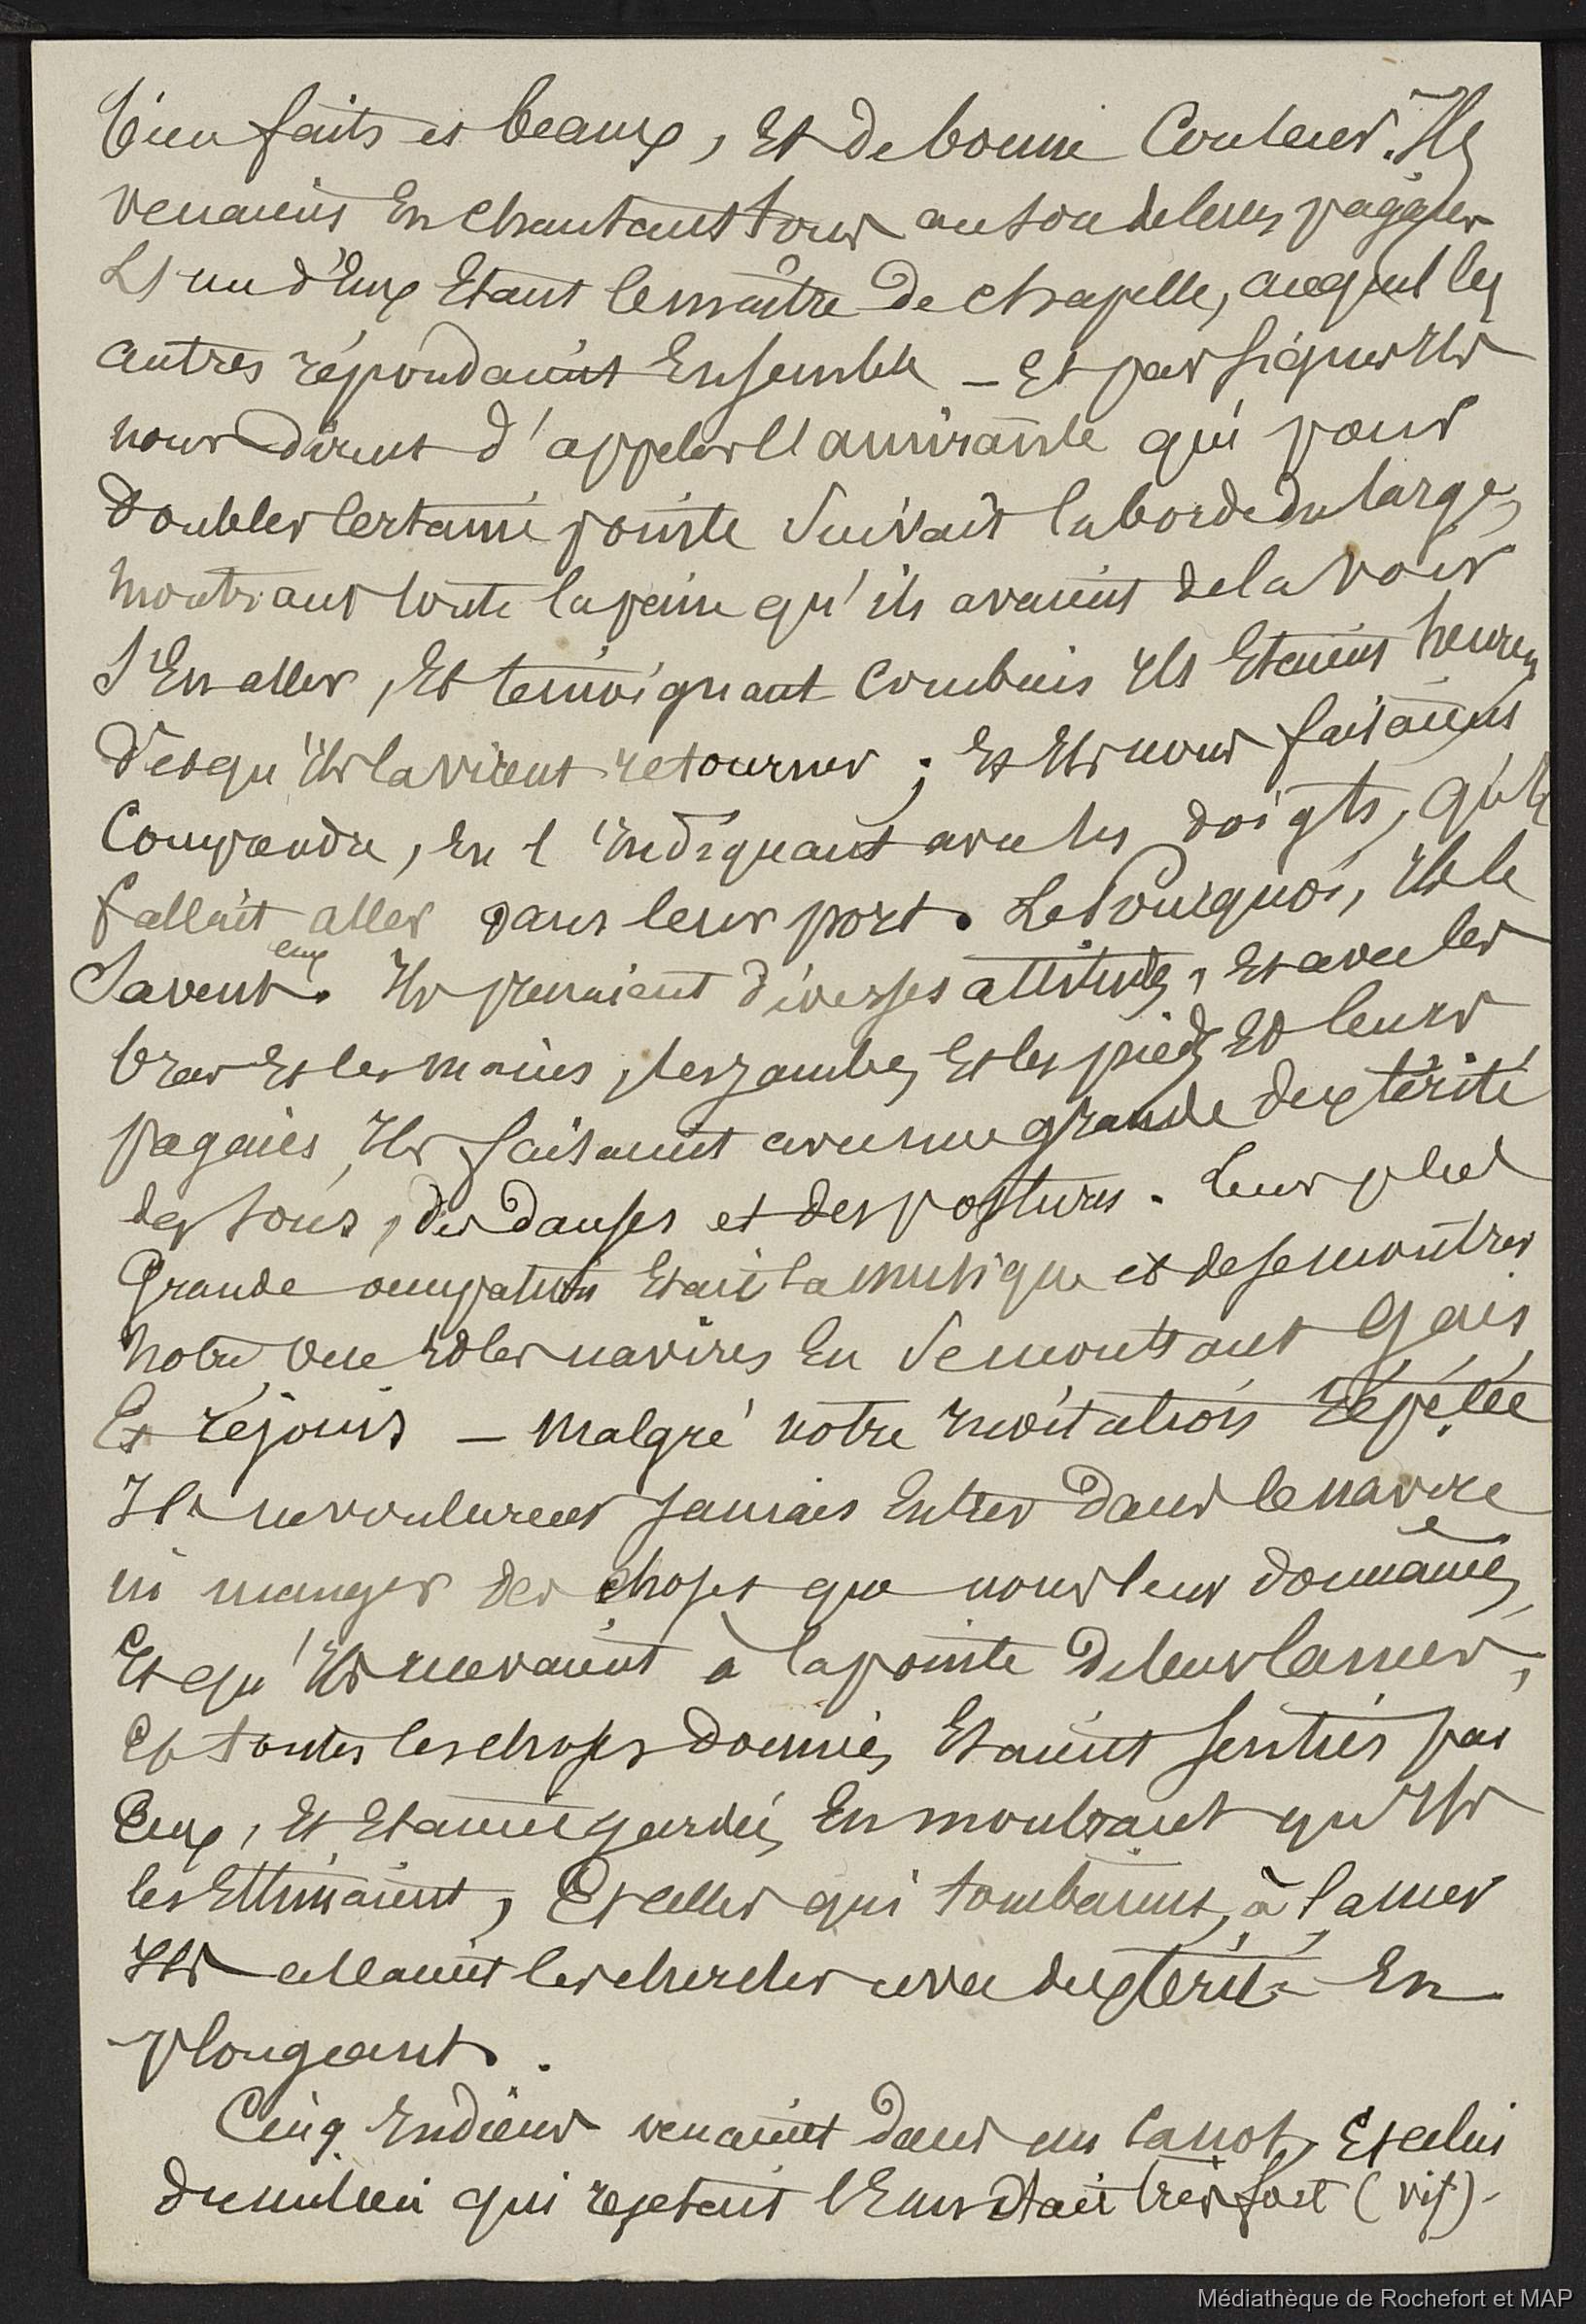 bien faits et beaux, Et de bonne Couleur. Ils
venaient En chantant tous au son de leurs pagaies
L'un d'Eux Etant le maître De chapelle, auquel les
autres répondaient Ensemble _ Et par signes Ils
nous dirent d'appeler l'amirante qui pour
Doubler Certaine pointe Suivait la borde du large,
montrant toute la peine qu'ils avaient de la voir
S'En aller, Et témoignant Combien Ils Etaient heureux
Dès qu'Ils la virent retourner ; Et Ils nous faisaient
Comprendre, En l'Indiquant avec les doigts, qu'il
fallait aller dans leur port. Le Pourquoi, Ils le
Savent eux. Ils prenaient diverses attitudes, Et avec les
bras Et les mains, les jambes Et les pieds Et leurs
pagaies, Ils faisaient avec une grande dextérité
des sons, des danses et des postures. Leur plus
Grande occupation Etait la musique et de se montrer
notre vue Et les navires En Se montrant Gais
Et réjouis _ malgré notre invitation répétée
Ils ne voulurent Jamais Entrer Dans le navire
ni manger des choses que nous leur donnâmes,
Et qu'Ils recevaient à la pointe De leurs lances,
Et toutes les choses Données Etaient senties par
Eux, Et Etaient gardées En montrant qu'Ils
les Estimaient, Et celles qui tombaient à la mer
Ils allaient les chercher avec dextérité En
plongeant.
Cinq Indiens venaient Dans un Canot, Et celui
du milieu qui rejetait l'Eau était très fort (vif).
Médiathèque de Rochefort et MAP